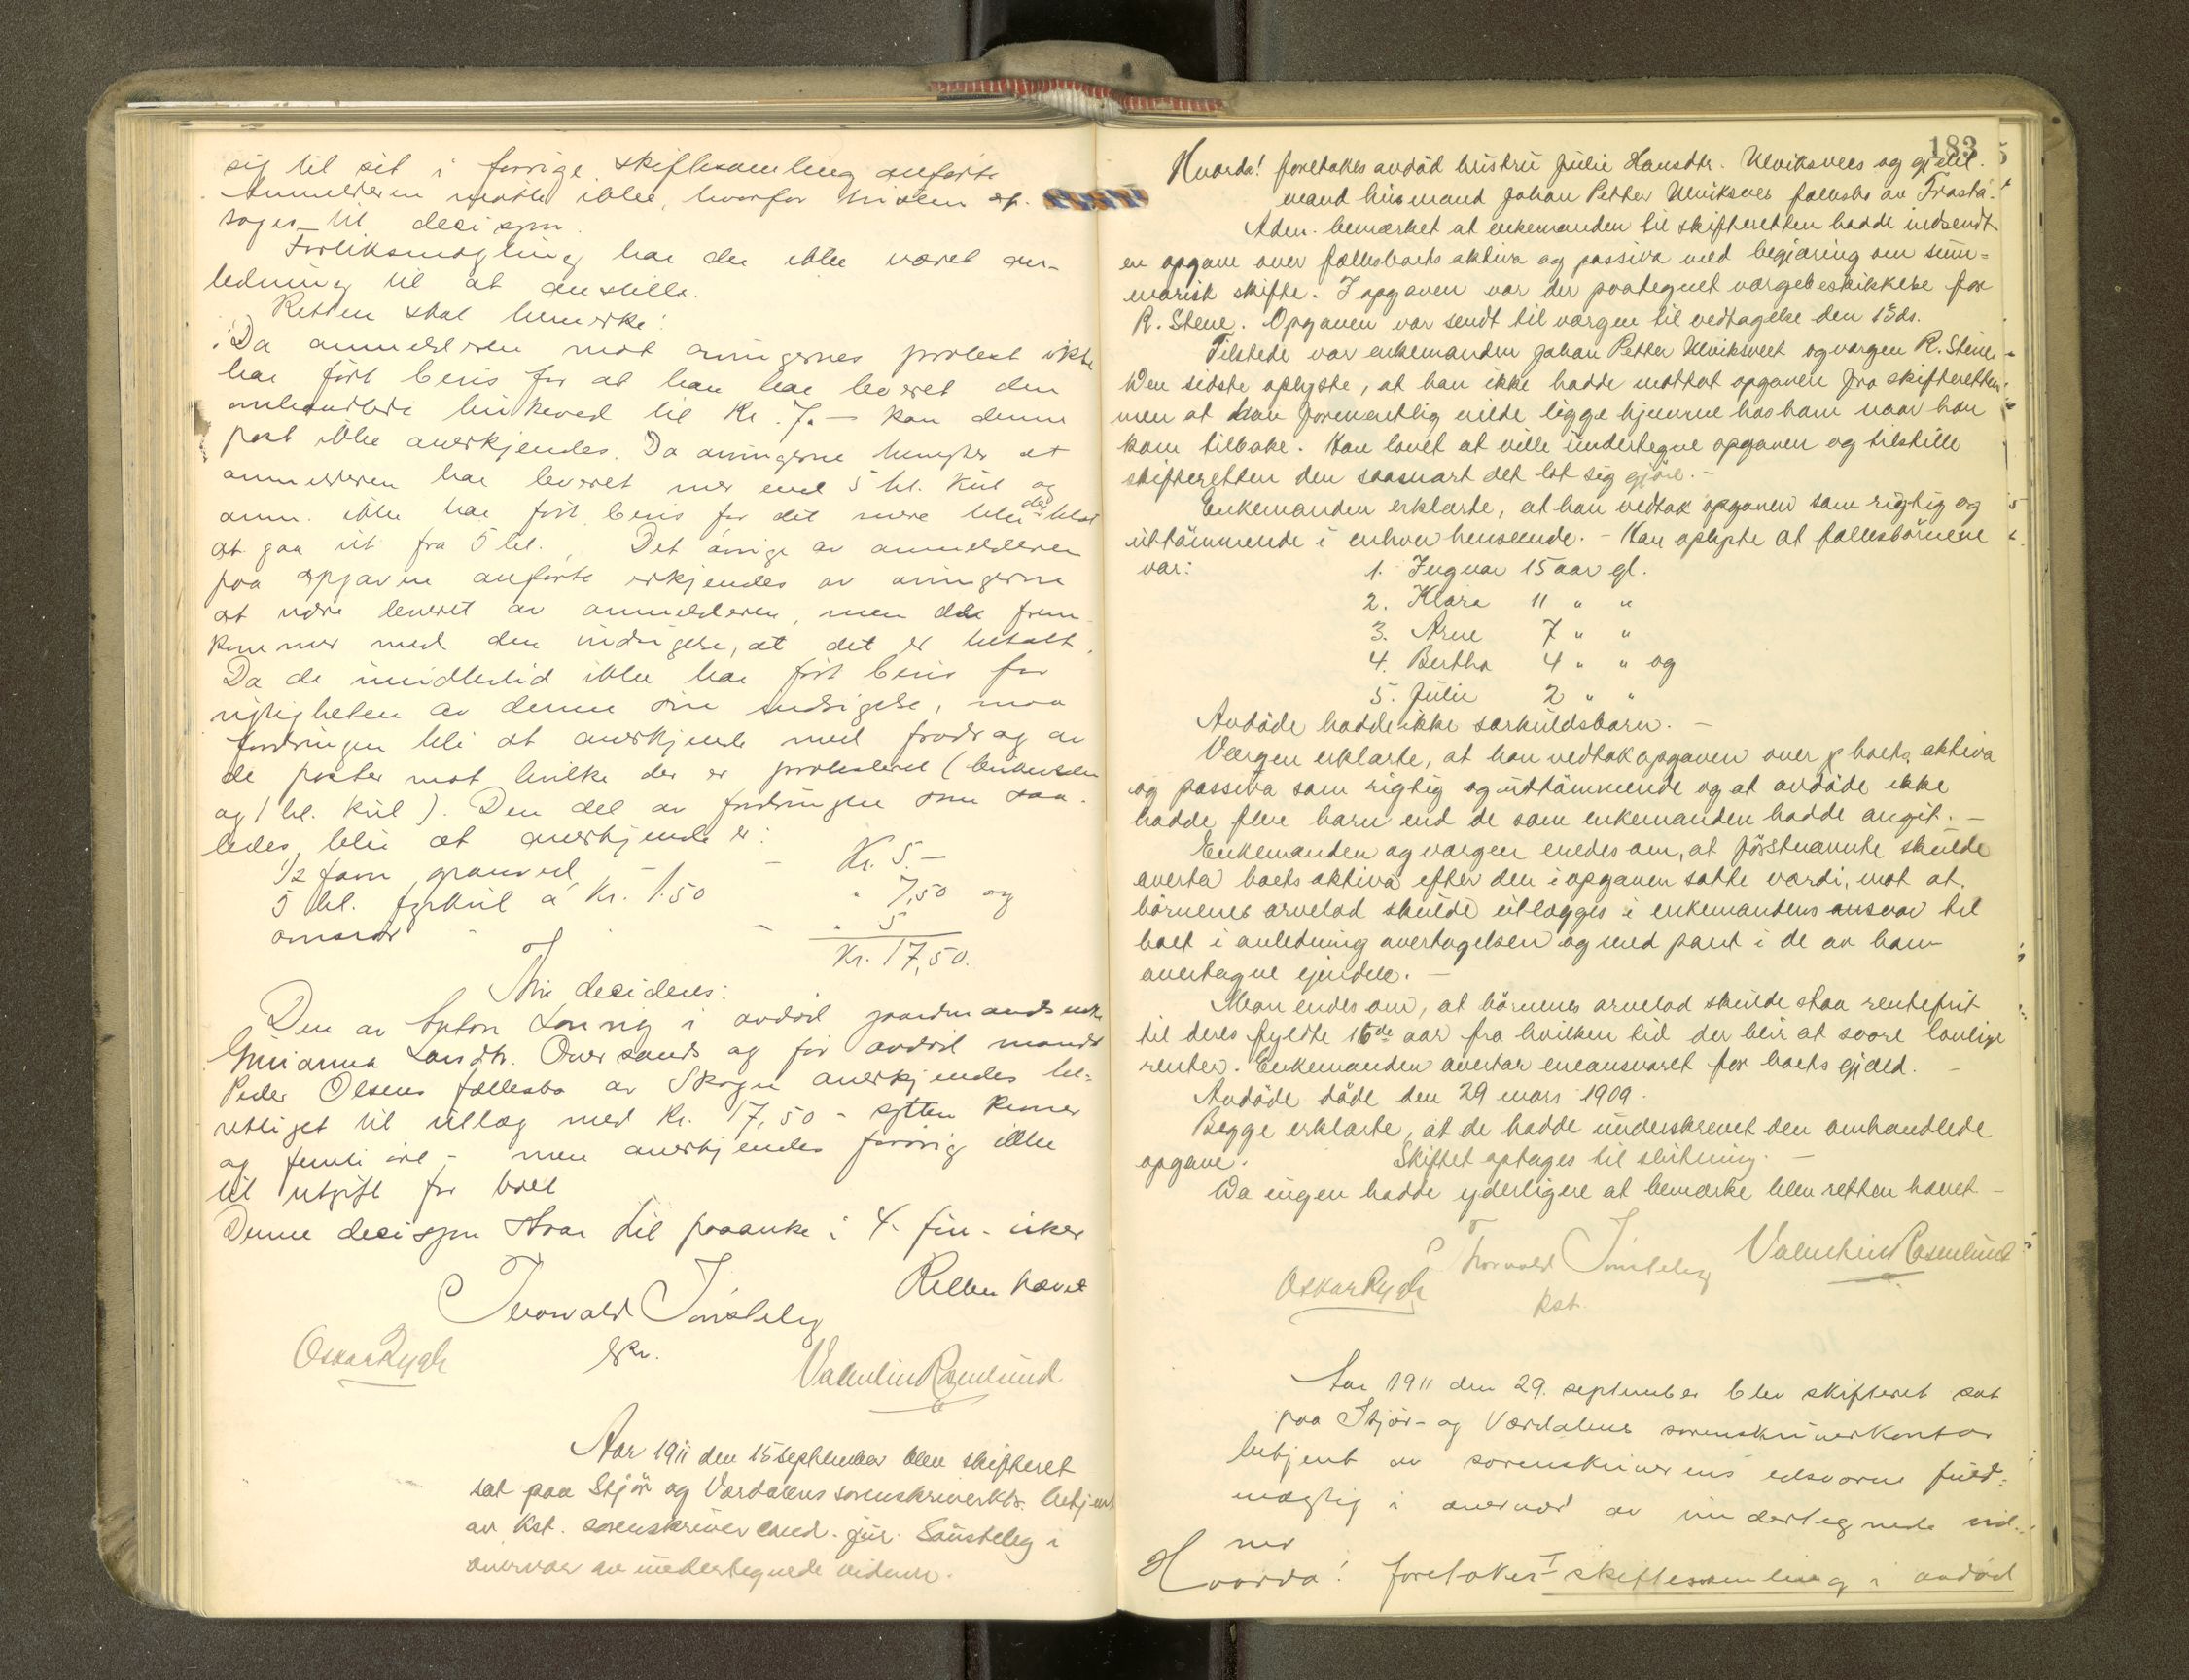 sig til sit i forrige skiftesamling anførte
Anmelderen møtte ikke, hvorfor tvisten op-
toges til decisjon.
Forliksmægling har der ikke været an-
ledning til at anstille.
Retten skal bemerke:
Da anmelderen mot arvingernes protest ikke
har ført bevis for at han har leveret den
omhandlede birkeved til Kr. 7.- kan denne
post ikke anerkjendes. Da arvingerne benegter at
anmelderen har leveret mer end 5 hl. kul og
anm. ikke har ført bevis for det mere blir det
at gaa ut fra 5 hl. Det øvrige av anmelderen
paa opgaven anførte erkjendes av arvingerne
at være leveret av anmelderen, men de frem-
kommer med den indsigelse, at det er betalt.
Da de imidlertid ikke har ført bevis for
rigtigheten av denne sin indsigelse, maa
fordringen bli at anerkjende med fradrag av
de poster mot hvilke der er protesteret (birkeveden
og 1 hl. kul). Den del av fordringen som saa-
ledes blir at anerkjende er:
1/2 favn granved - Kr. 5.-
5 hl. fyrkul á Kr. 1.50 " 7,50 og
omsror - - " 5
Kr. 17,50.
Thi decideres:
Den av Anton Lornig i avdød gaardmandsenke
Gurianna Larsdtr. Oversands og før avdød mands
Peder Olsens fællesbo av Skogn anerkjendes be-
rettiget til utlæg med Kr. 17,50 - sytten kroner
og femti øre - men anerkjendes forøvrig ikke
til utgift for boet
Denne decisjon staar til paaanke i 4 - fire - uker
Retten hævet
Thorvald Sausteleg
Oskar Rygh
Valentin Rosenlund
Aar 1911 den 15 september blev skifteret
sat paa Stjør og Værdalens sorenskriverktr. betjent
av kst. sorenskriver cand. jur. Sausteleg i
overvær av undertegnede vidner.
183
Hvorda! foretakes avdød hustru Julie Hansdtr. Ulviksvees og gjenl.
mand husmand Johan Petter Ulviksvees fællesbo av Frosta.
Adm. bemærket at enkemanden til skifteretten hadde indsendt
en opgave over fællesboets aktiva og passiva med begjæring om sum-
marisk skifte. I opgaven var der paategnet værgebeskikkelse for
R. Stene. Opgaven var sendt til værgen til vedtagelse den 13 ds.
Tilstede var enkemanden Johan Petter Ulviksveet og værgen R. Stene.
Den sidste oplyste, at han ikke hadde mottat opgaven fra skifteretten
men at den formentlig vilde ligge hjemme hos ham naar han
kom tilbake. Han lovet at ville undertegne opgaven og tilstille
skifteretten den saasnart det lot sig gjøre. -
Enkemanden erklærte, at han vedtok opgaven som rigtig og
uttømmende i enhver henseende. - Han oplyste at fællesbørnene
var: 1. Ingvar 15 aar gl.
2. Klara 11 " "
3. Arne 7 " "
4. Bertha 4 " " og
5. Julie 2 " "
Avdøde hadde ikke særkuldsbarn. -
Værgen erklærte, at han vedtok opgaven over boets aktiva
og passiva som rigtig og uttømmende og at avdøde ikke
hadde flere barn end de som enkemanden hadde angit. -
Enkemanden og værgen enedes om, at førstnævnte skulde
overta boets aktiva efter den i opgaven satte værdi, mot at
børnenes arvelod skulde utlægges i enkemandens ansvar til
boet i anledning overtagelsen og med pant i de av ham
overtagne eiendele. -
Man enedes om, at børnenes arvelod skulde staa rentefrit
til deres fyldte 16de aar fra hvilken tid der blir at svare lovlige
renter. Enkemanden overtar eneansvaret for boets gjæld. -
Avdøde døde den 29 mars 1909.
Begge erklærte, at de hadde underskrevet den omhandlede
opgave. Skiftet optages til slutning. -
Da ingen hadde yderligere at bemærke blev retten hævet -
Thorvald Sausteleg Valentin Rosenlund
Oskar Rygh kst.
Aar 1911 den 29. september blev skifteret sat
paa Stjør- og Værdalens sorenskriverkontor
betjent av sorenskriverens edsvorne fuld-
mægtig i overvær av undertegnede vid-
ner
Hvorda! foretokes I skiftesamling i avdød